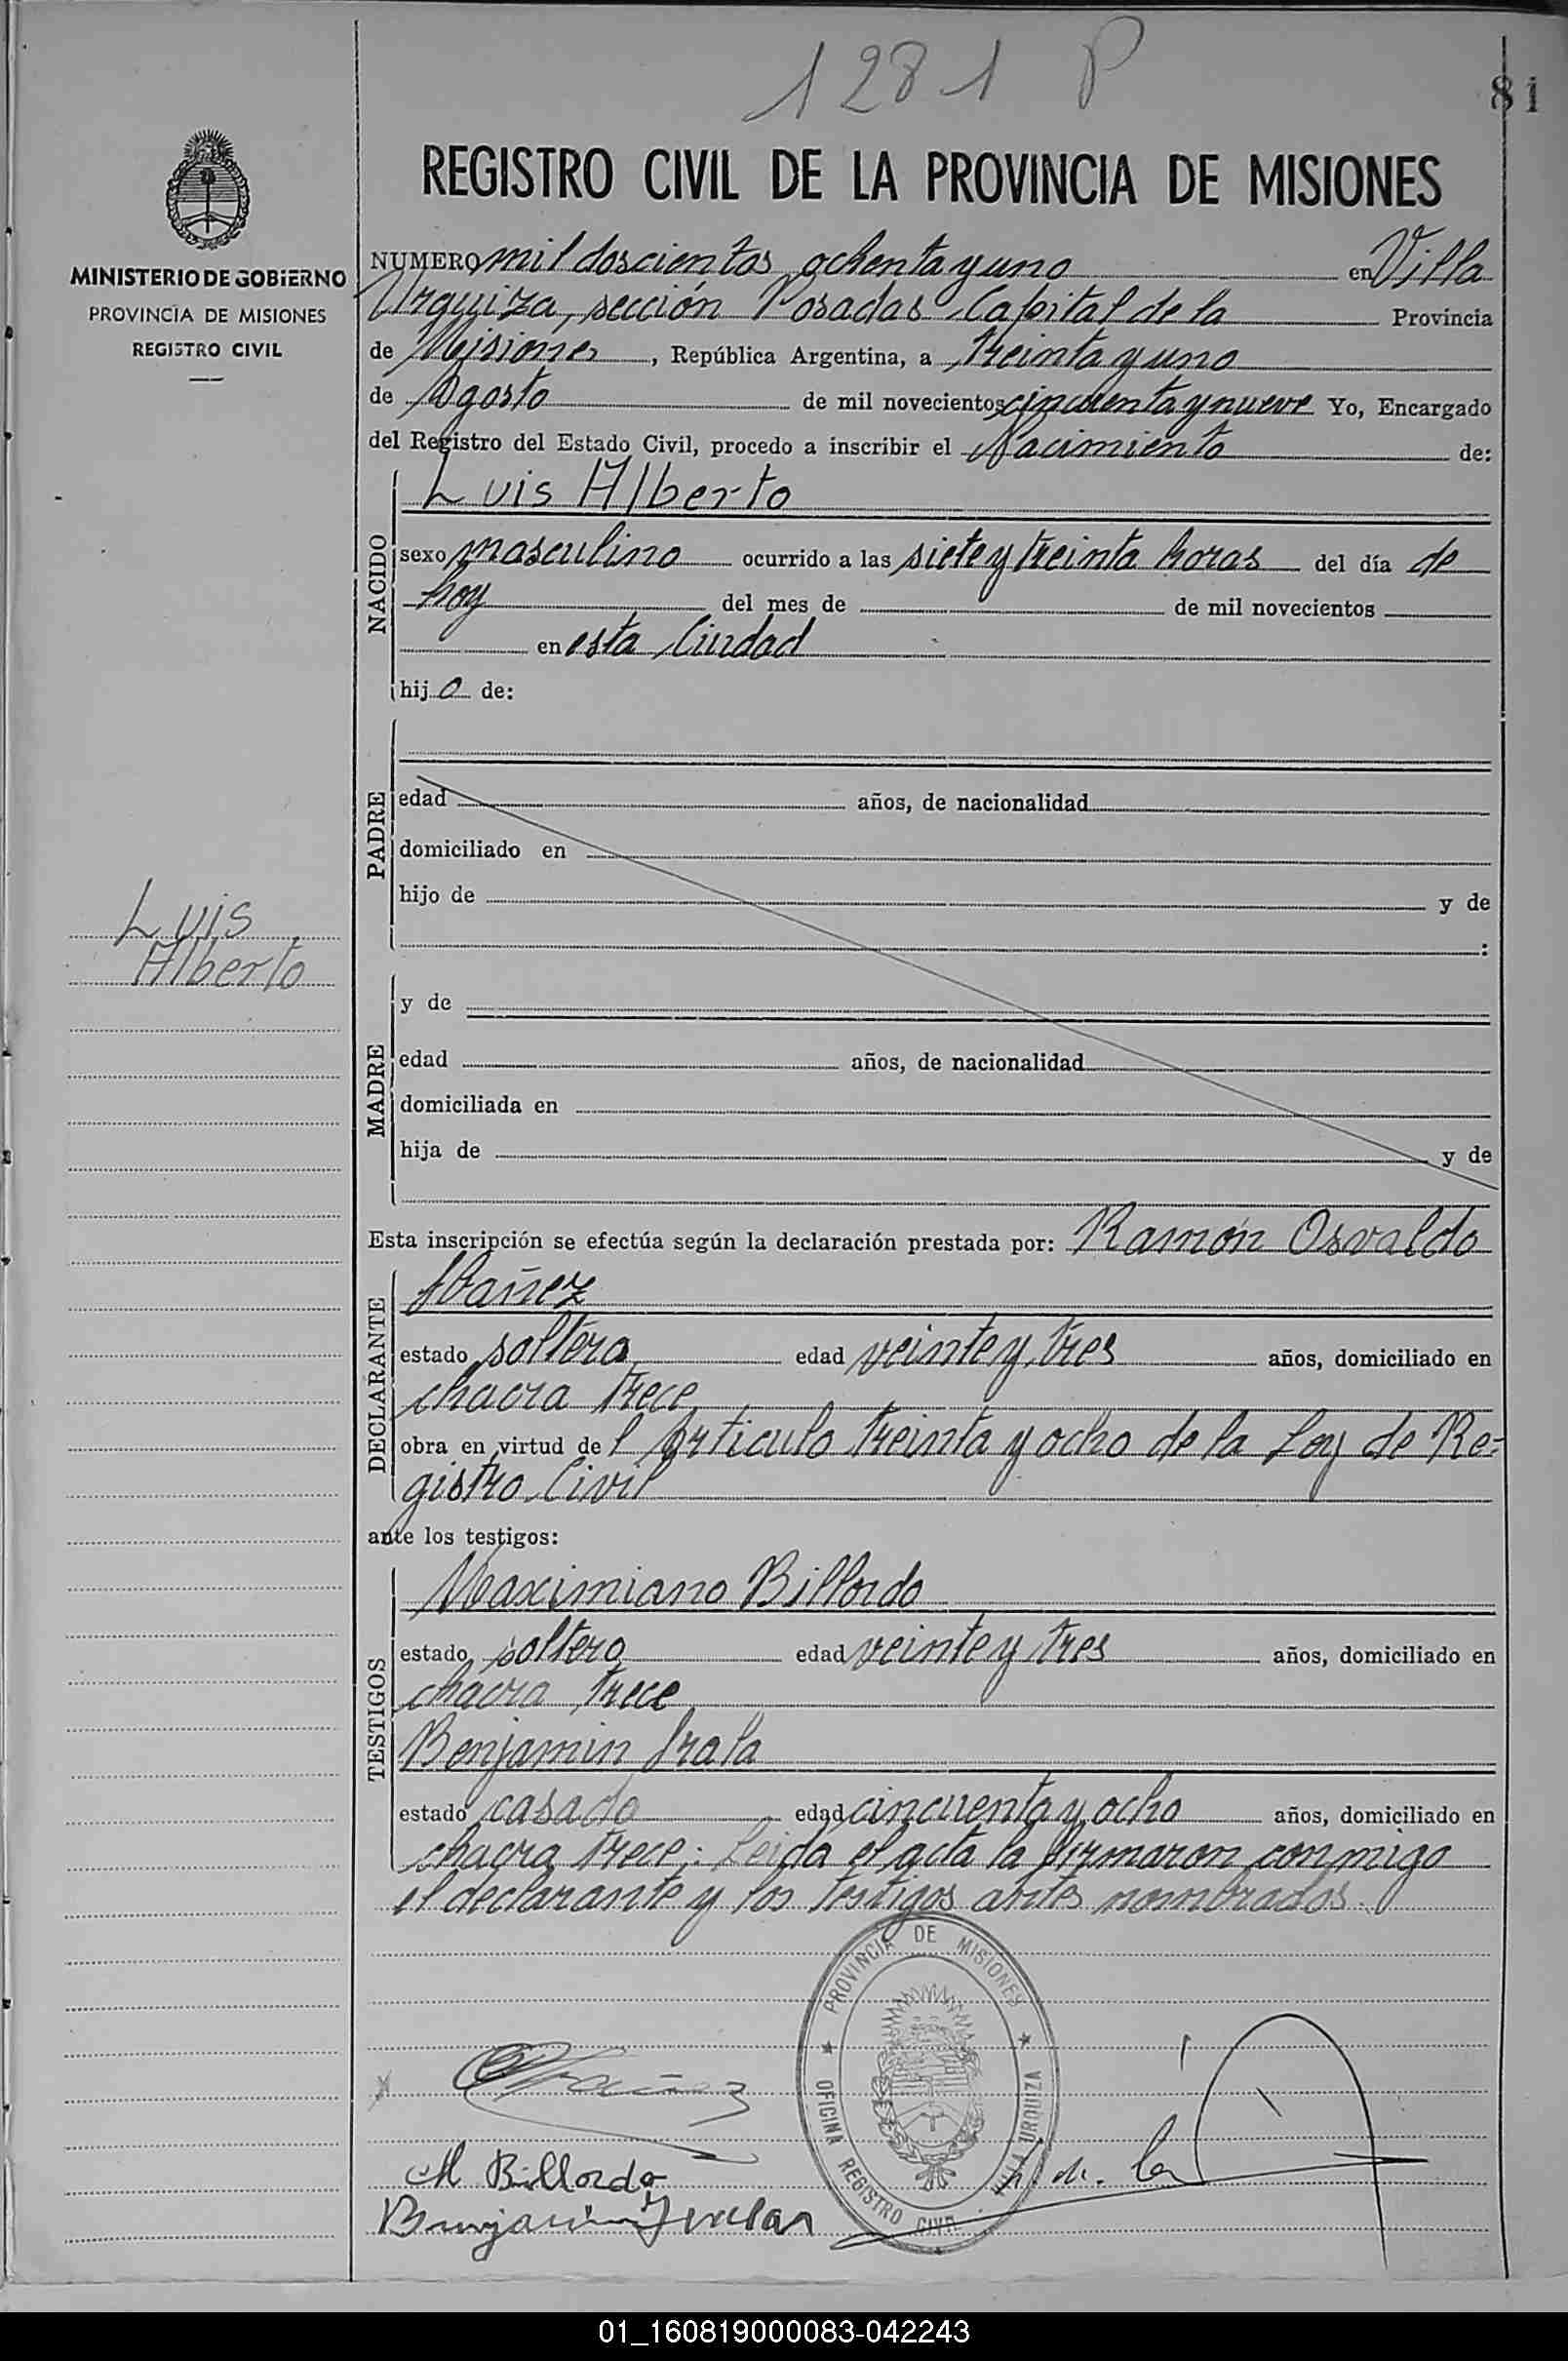 1281 P
81
REGISTRO CIVIL DE LA PROVINCIA DE MISIONES
MINISTERIO DE GOBIERNO
PROVINCIA DE MISIONES
REGISTRO CIVIL
NUMERO mil doscientos ochenta y uno en Villa
Urquiza, sección Posadas Capital de la Provincia
de Misiones, República Argentina, a treinta y uno
de Agosto de mil novecientos cincuenta y nueve Yo, Encargado
del Registro del Estado Civil, procedo a inscribir el Nacimiento de:
NACIDO
Luis Alberto
sexo masculino ocurrido a las siete y treinta horas del día de
hoy del mes de de mil novecientos
en esta Ciudad
hijo de:
PADRE
edad años, de nacionalidad
domiciliado en
hijo de y de
:
Luis
Alberto
MADRE
y de
edad años, de nacionalidad
domiciliada en
hija de y de
Esta inscripción se efectúa según la declaración prestada por: Ramón Osvaldo
DECLARANTE
Ibañez
estado soltero edad veinte y tres años, domiciliado en
chacra trece
obra en virtud del Articulo treinta y ocho de la Ley de Re-
gistro Civil
ante los testigos:
TESTIGOS
Maximiano Billordo
estado soltero edad veinte y tres años, domiciliado en
chacra trece
Benjamin Irala
estado casado edad cincuenta y ocho años, domiciliado en
chacra trece; Leida el acta la firmaron conmigo
el declarante y los testigos antes nombrados.
PROVINCIA DE MISIONES
OFICINA REGISTRO CIVIL VILLA URQUIZA
M Billordo
01_160819000083-042243